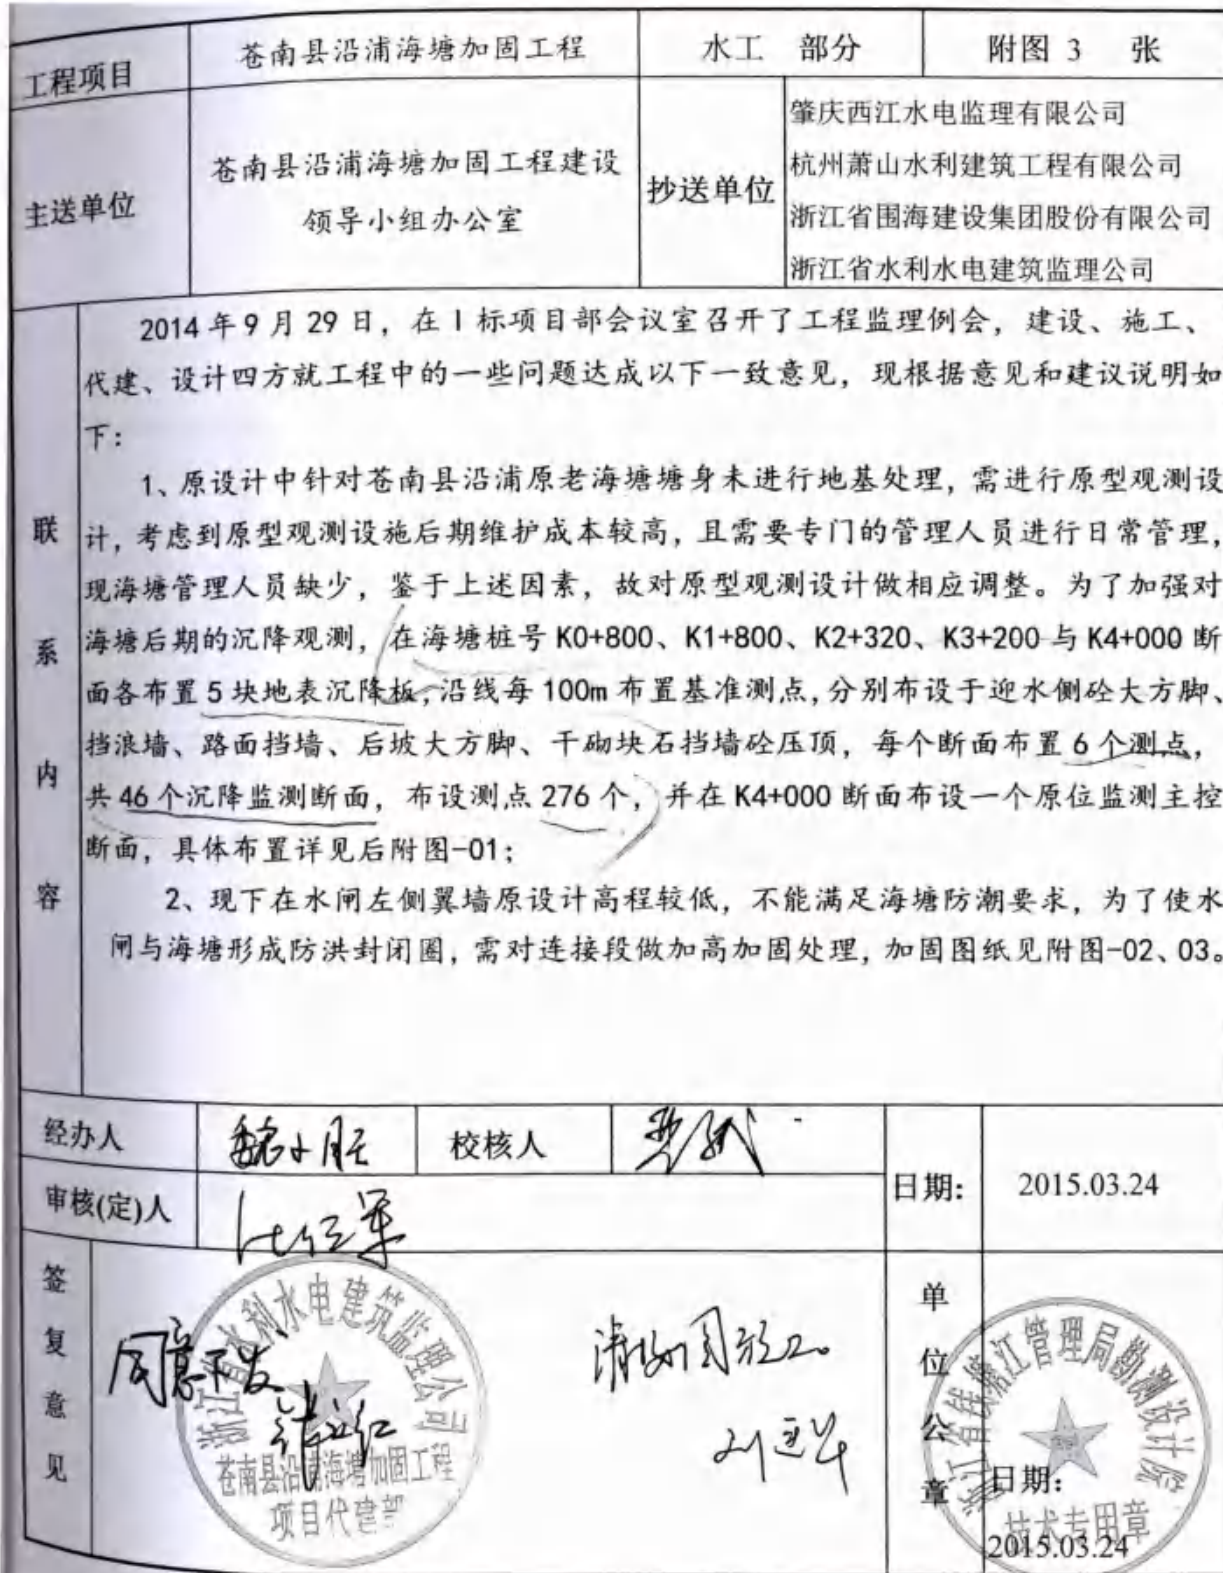 工程项目
苍南县沿浦海塘加固工程
水工 部分
附图 3 张
主送单位
苍南县沿浦海塘加固工程建设
领导小组办公室
抄送单位
肇庆西江水电监理有限公司
杭州萧山水利建筑工程有限公司
浙江省围海建设集团股份有限公司
浙江省水利水电建筑监理公司
联系内容
2014年9月29日，在Ⅰ标项目部会议室召开了工程监理例会，建设、施工、
代建、设计四方就工程中的一些问题达成以下一致意见，现根据意见和建议说明如
下：
1、原设计中针对苍南县沿浦原老海塘塘身未进行地基处理，需进行原型观测设
计，考虑到原型观测设施后期维护成本较高，且需要专门的管理人员进行日常管理，
现海塘管理人员缺少，鉴于上述因素，故对原型观测设计做相应调整。为了加强对
海塘后期的沉降观测，在海塘桩号 K0+800、K1+800、K2+320、K3+200 与 K4+000 断
面各布置5块地表沉降板，沿线每100m布置基准测点，分别布设于迎水侧砼大方脚、
挡浪墙、路面挡墙、后坡大方脚、干砌块石挡墙砼压顶，每个断面布置6个测点，
共46个沉降监测断面，布设测点276个，并在K4+000断面布设一个原位监测主控
断面，具体布置详见后附图-01；
2、现下在水闸左侧翼墙原设计高程较低，不能满足海塘防潮要求，为了使水
闸与海塘形成防洪封闭圈，需对连接段做加高加固处理，加固图纸见附图-02、03。
经办人
校核人
审核(定)人
日期：
2015.03.24
签复意见
同意下发
浙江省水利水电建筑监理公司
苍南县沿浦海塘加固工程
项目代建部
单位公章
浙江省钱塘江管理局勘测设计院
技术专用章
日期：
2015.03.24